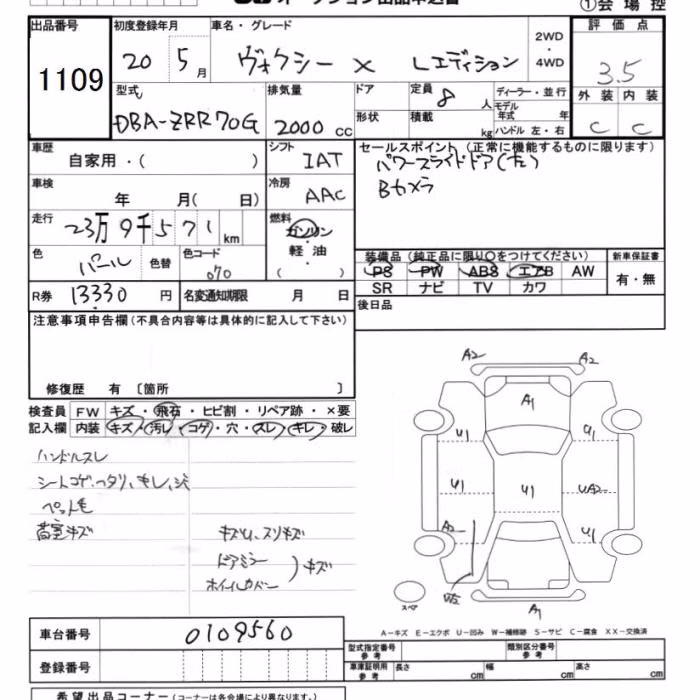 ①会場控
出品番号 初度登録年月 車名・グレード 2WD・4WD 評価点
1109 20 5月 ヴォクシー X Lエディション 3.5
型式 排気量 ドア 定員 8人 ディーラー・並行 外装 内装
モデル年式 年
DBA-ZRR70G 2000cc 形状 積載 kg ハンドル 左・右 C C
車歴 自家用・( ) シフト IAT セールスポイント (正常に機能するものに限ります)
パワースライドドア(左)
車検 年 月( 日) 冷房 AAC Bカメラ
走行 23万9千571km 燃料 ガソリン
軽油
( )
色 パール 色替 色コード 070 装備品 (純正品に限り○をつけてください) 新車保証書
PS PW ABS エアB AW 有・無
SR ナビ TV カワ
R券 13330円 名変通知期限 月 日 後日品
注意事項申告欄(不具合内容等は具体的に記入して下さい)
修復歴 有 〔箇所 〕
検査員 FW キズ・飛石・ヒビ割・リペア跡・×要
記入欄 内装 キズ・汚レ・コゲ・穴・スレ・キレ・破レ
ハンドルスレ
シートコゲ、ヘタリ、キレ、シミ
ペット毛
荷室キズ キズU、スリキズ
ドアミラー
ホイールカバー )キズ
A2 A2
A1
U1 U1
U1 U1 UA2
A2 U1
A1
スペア
A-キズ E-エクボ U-凹み W-補修跡 S-サビ C-腐食 XX-交換済
車台番号 0109560 型式指定番号 参考 類別区分番号 参考
登録番号 車庫証明用 参考 長さ cm 幅 cm 高さ cm
希望出品コーナー(コーナーは各会場により異なります。)